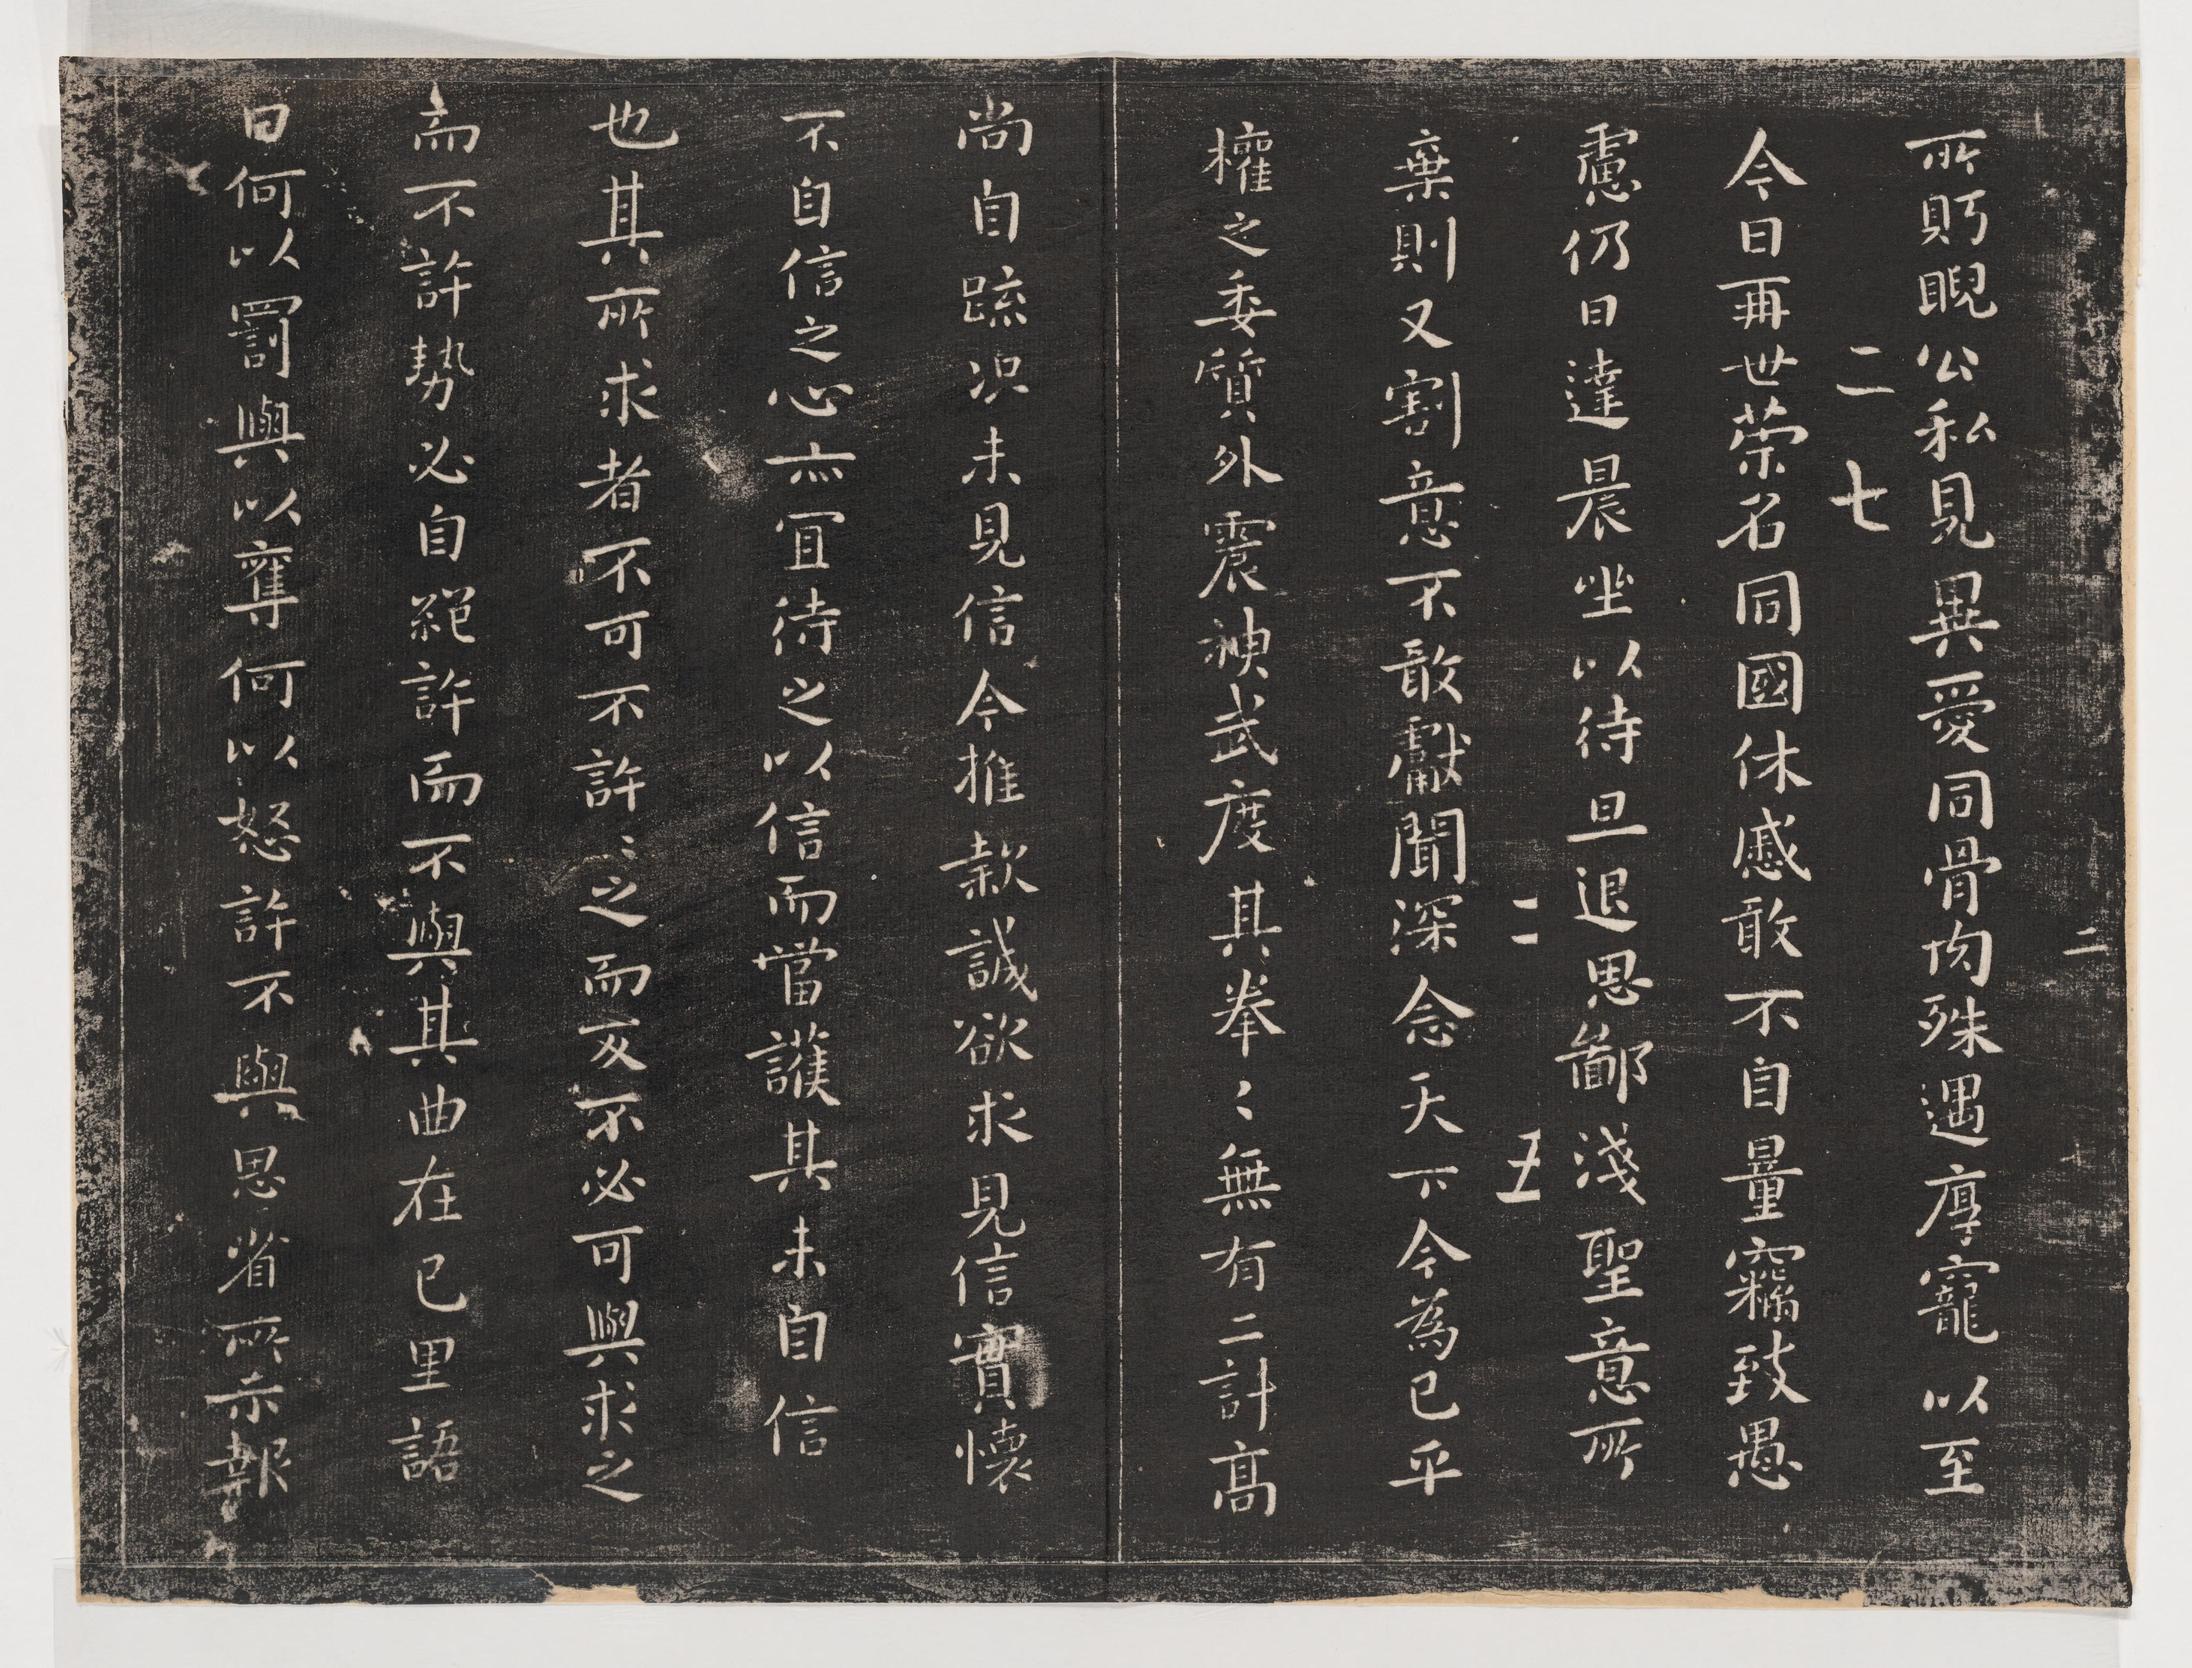 二
所貶睨公私見異愛同骨肉殊遇厚寵以至
二七
今日再世榮名同國休慼敢不自量竊致愚
慮仍日達晨坐以待旦退思鄙淺聖意所
二五
棄則又割意不敢獻聞深念天下今為已平
權之委質外震神武度其拳〻無有二計高
尚自疏况未見信今推款誠欲求見信實懷
不自信之心亦宜待之以信而當護其未自信
也其所求者不可不許〻之而反不必可與求之
而不許勢必自絕許而不與其曲在己里語
曰何以罰與以奪何以怒許不與思省所示報